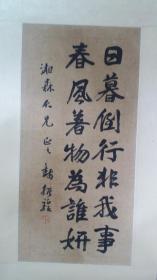 日暮倒行非我事
春風著物為誰妍
湘森仁兄正之